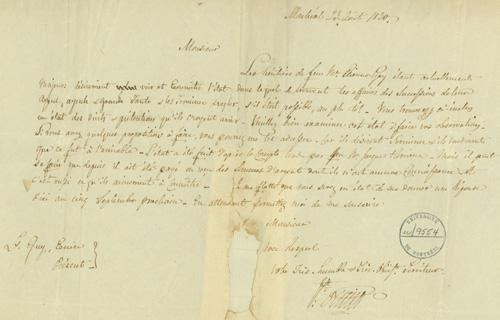 Montréal 22 Août 1820.
Monsieur
Les héritiers de feu Mr Etienne Guy étant actuellement
majeurs désireraient voir et connaître l'état dans lequel se trouvent les affaires des Successions de leur
Ayeul, ayeule & Grande Tante & les terminer & régler, s'il était possible, au plutôt. Vous trouverez ci inclus
un état des droits & prétentions qu'ils croyent avoir. Veuillez bien examiner cet état & faire vos observations.
Si vous avez quelques propositions à faire, vous pouvez me les adresser. Car ils désirent terminer s'ils veulent
que ce fut à l'amiable. L'état a été fait d'après le Compte rendu par feu Mr
se faire que depuis il ait été payé ou reçu des sommes d'argent dont ils n'ont aucune connaissance. Et
c'est aussi ce qu'ils aimeraient à connaître. Je me flatte que vous serez en état de me donner une réponse
d'ici au cinq Septembre prochain. En attendant permettez moi de me souscrire
Monsieur
avec respect
Votre très humble & très Obéist. serviteur
L. Guy, Ecuier
Présent
UNIVERSITÉ
No 9564
DE MONTRÉAL